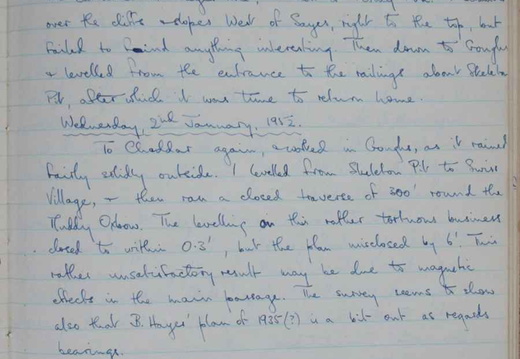 over the cliffs & slopes West of Sayes, right to the top, but
failed to find anything interesting. Then down to Goughs
& levelled from the entrance to the railings about Skeleton
Pit, after which it was time to return home.
Wednesday, 2nd January, 1952.
To Cheddar again, & worked in Goughs, as it rained
fairly solidly outside. I levelled from Skeleton Pit to Swiss
Village, & then ran a closed traverse of 300' round the
Muddy Oxbow. The levelling on this rather tortuous business
closed to within 0.3', but the plan misclosed by 6'. This
rather unsatisfactory result may be due to magnetic
effects in the main passage. The survey seems to show
also that B. Hayes' plan of 1935(?) is a bit out as regards
bearings.